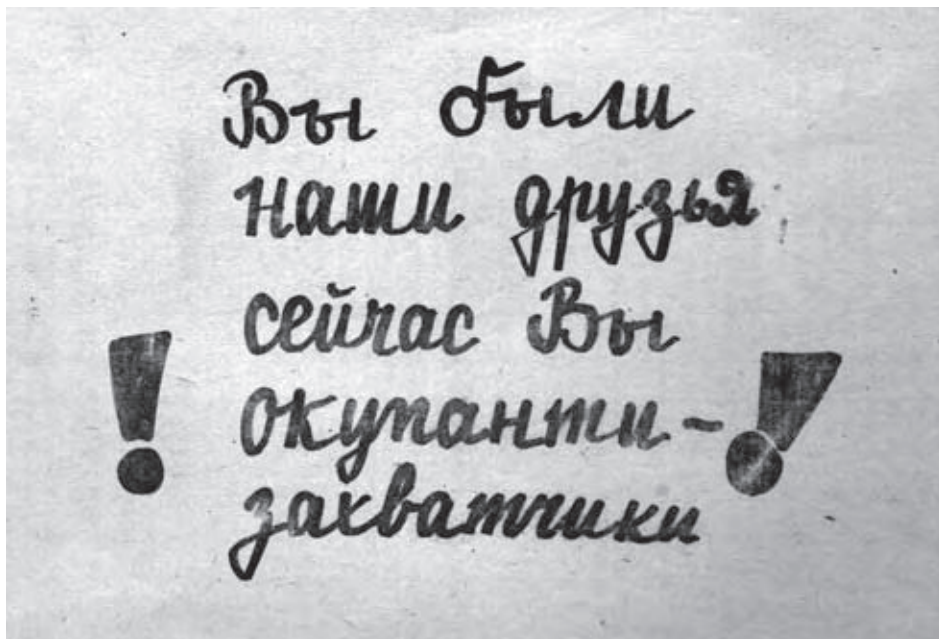 Вы были
наши друзья
сейчас Вы
! окупанти- !
захватчики